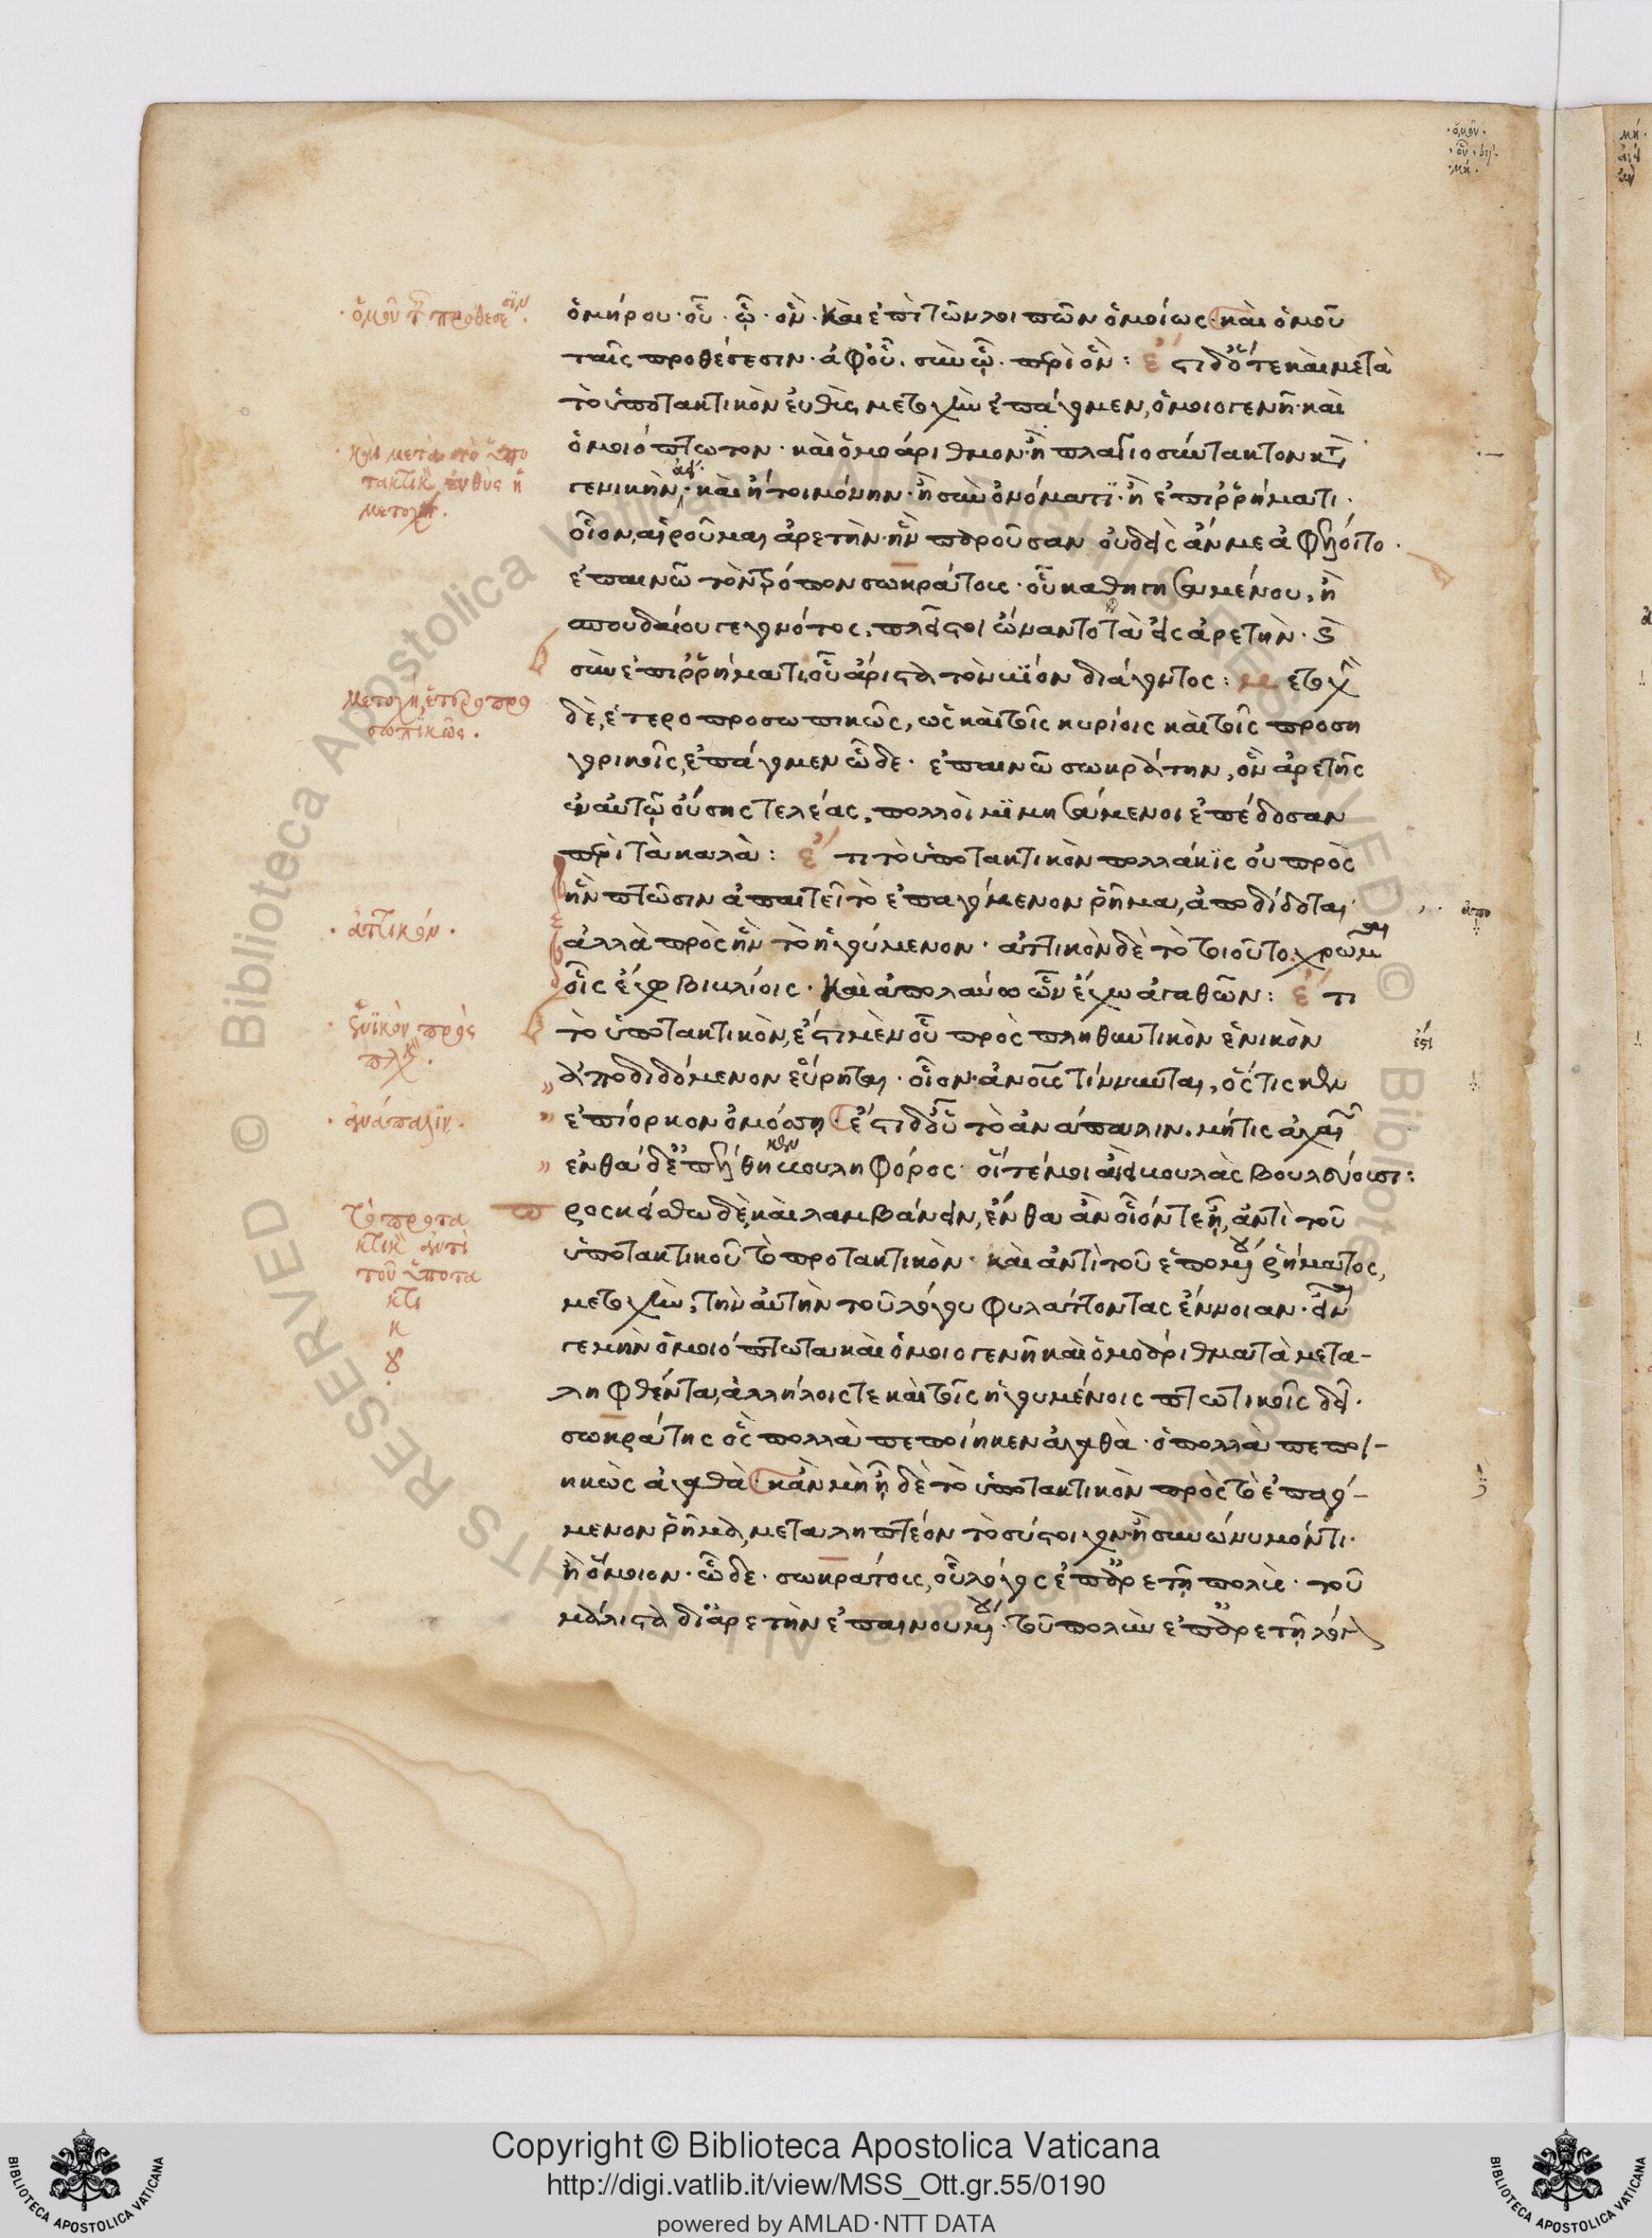 ·ὁμοῦ·
·οὗ·
·μή·
ὁμήρου· οὗ· ᾧ· ὃν· καὶ ἐπὶ τῶν λοιπῶν ὁμοίως· καὶ ὁμοῦ
ταῖς προθέσεσιν· ἀφ' οὗ· σὺν ᾧ· περὶ ὃν: ἔστι δ' ὅτε καὶ μετὰ
τὸ ὑποτακτικὸν εὐθὺς μετοχὴν ἐπάγομεν, ὁμοιογενῆ· καὶ
ὁμοιόπτωτον· καὶ ὁμοάριθμον· ἢ πλαγιοσύντακτον κατὰ
γενικὴν· καὶ ἤτοι μόνην· ἢ σὺν ὀνόματι· ἢ ἐπιρρήματι·
οἷον, αἱροῦμαι ἀρετὴν· ἣν παροῦσαν οὐδεὶς ἄν με ἀφέλοιτο·
ἐπαινῶ τὸν τρόπον σωκράτους· οὗ καθηγησαμένου, ἢ
σπουδαίου γεγονότος, πλεῖστοι ὤναντο τὰ εἰς ἀρετὴν· ἢ
σὺν ἐπιρρήματι, οὗ ἄριστα τὸν βίον διάγοντος: μετοχὴν
δὲ, ἑτεροπροσωπικῶς, ὡς καὶ τοῖς κυρίοις καὶ τοῖς προση
γορικοῖς, ἐπάγομεν ὧδε· ἐπαινῶ σωκράτην, ὃν ἀρετῆς
ἐν αὐτῷ οὔσης τελείας, πολλοὶ μιμησάμενοι ἐπέδοσαν
περὶ τὰ καλὰ: ἔτι τὸ ὑποτακτικὸν πολλάκις οὐ πρὸς
ἣν πτῶσιν ἀπαιτεῖ τὸ ἐπαγόμενον ῥῆμα, ἀποδίδοται·
ἀλλὰ πρὸς ἣν τὸ ἡγούμενον· ἀττικὸν δὲ τὸ τοιοῦτο, χρῶμαι
οἷς ἔχω βιβλίοις· καὶ ἀπολαύω ὧν ἔχω ἀγαθῶν: ἔτι
τὸ ὑποτακτικὸν, ἔστι μὲν οὗ πρὸς πληθυντικὸν ἑνικὸν
ἀποδιδόμενον εὕρηται· οἷον· ἀνθρώπους τίννυνται, ὅς τις κεν
ἐπίορκον ὀμόσσῃ· ἔστι δ' οὗ τὸ ἀνάπαλιν. μή τις ἀχαιῶν
ἐνθάδε βουληφόρος· οἵ τέ μοι αἰεὶ βουλὰς βουλεύουσι:
προσκείσθω δὲ, καὶ λαμβάνειν, ἔνθα ἂν οἷόν τε ᾖ, ἀντὶ τοῦ
ὑποτακτικοῦ τὸ προτακτικὸν· καὶ ἀντὶ τοῦ ἑπομένου ῥήματος,
μετοχὴν, τὴν αὐτὴν τοῦ λόγου φυλάττοντας ἔννοιαν· εἶναι
γε μὴν ὁμοιόπτωτα καὶ ὁμοιογενῆ καὶ ὁμοάριθμα τὰ μετα-
ληφθέντα, ἀλλήλοις τε καὶ τοῖς ἡγουμένοις πτωτικοῖς δεῖ·
σωκράτης ὃς πολλὰ πεποίηκεν ἀγαθὰ· ὁ πολλὰ πεποι-
ηκὼς ἀγαθὰ· κἂν μὴ ᾖ δὲ τὸ ὑποτακτικὸν πρὸς τὸ ἐπαγό-
μενον ῥῆμα, μεταληπτέον τὸ σύστοιχον· ἢ συνωνυμοῦν τι·
ἢ ὅμοιον· ὧδε· σωκράτους, οὗ λόγος ἐπ' ἀρετῇ πολὺς· τοῦ
μάλιστα δι' ἀρετὴν ἐπαινουμένου· τοῦ πολὺν ἐπ' ἀρετῇ λόγον
·ὁμοῦ τ προθέσεσιν·
·καὶ μετὰ τὸ ὑπο
τακτικὸν εὐθὺς ἡ
μετοχή·
μετοχὴ, ἑτεροπρο
σωπικῶς·
·ἀττικόν·
·ἑνικὸν πρὸς
πλη·
·ἀνάπαλιν·
τὸ προτα
κτικὸν ἀντὶ
τοῦ ὑποτα
κτι
κ
οῦ
Copyright © Biblioteca Apostolica Vaticana
http://digi.vatlib.it/view/MSS_Ott.gr.55/0190
powered by AMLAD·NTT DATA
BIBLIOTECA APOSTOLICA VATICANA
BIBLIOTECA APOSTOLICA VATICANA